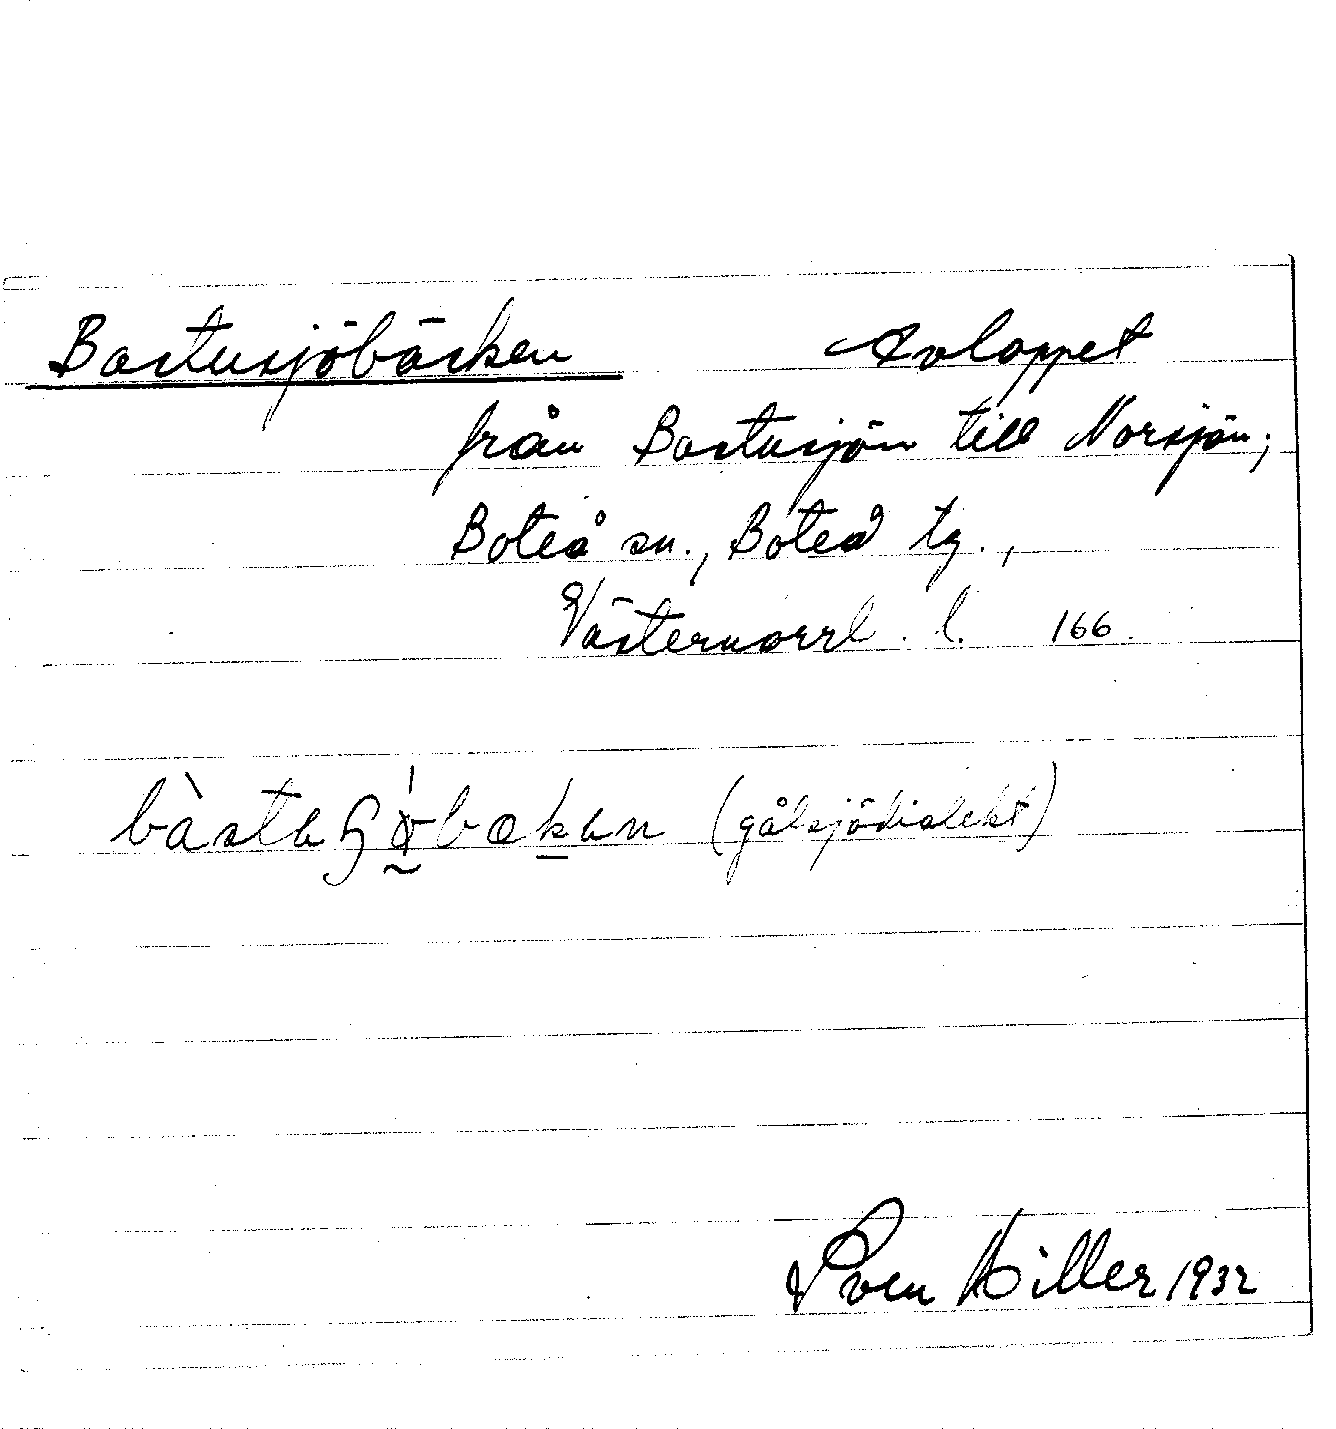 Bastusjöbäcken Avloppet
från Bastusjön till Norsjön;
Boteå sn., Boteå tg.,
Västernorrl. l. 166.
(gålsjödialekt)
Sven Hiller 1932